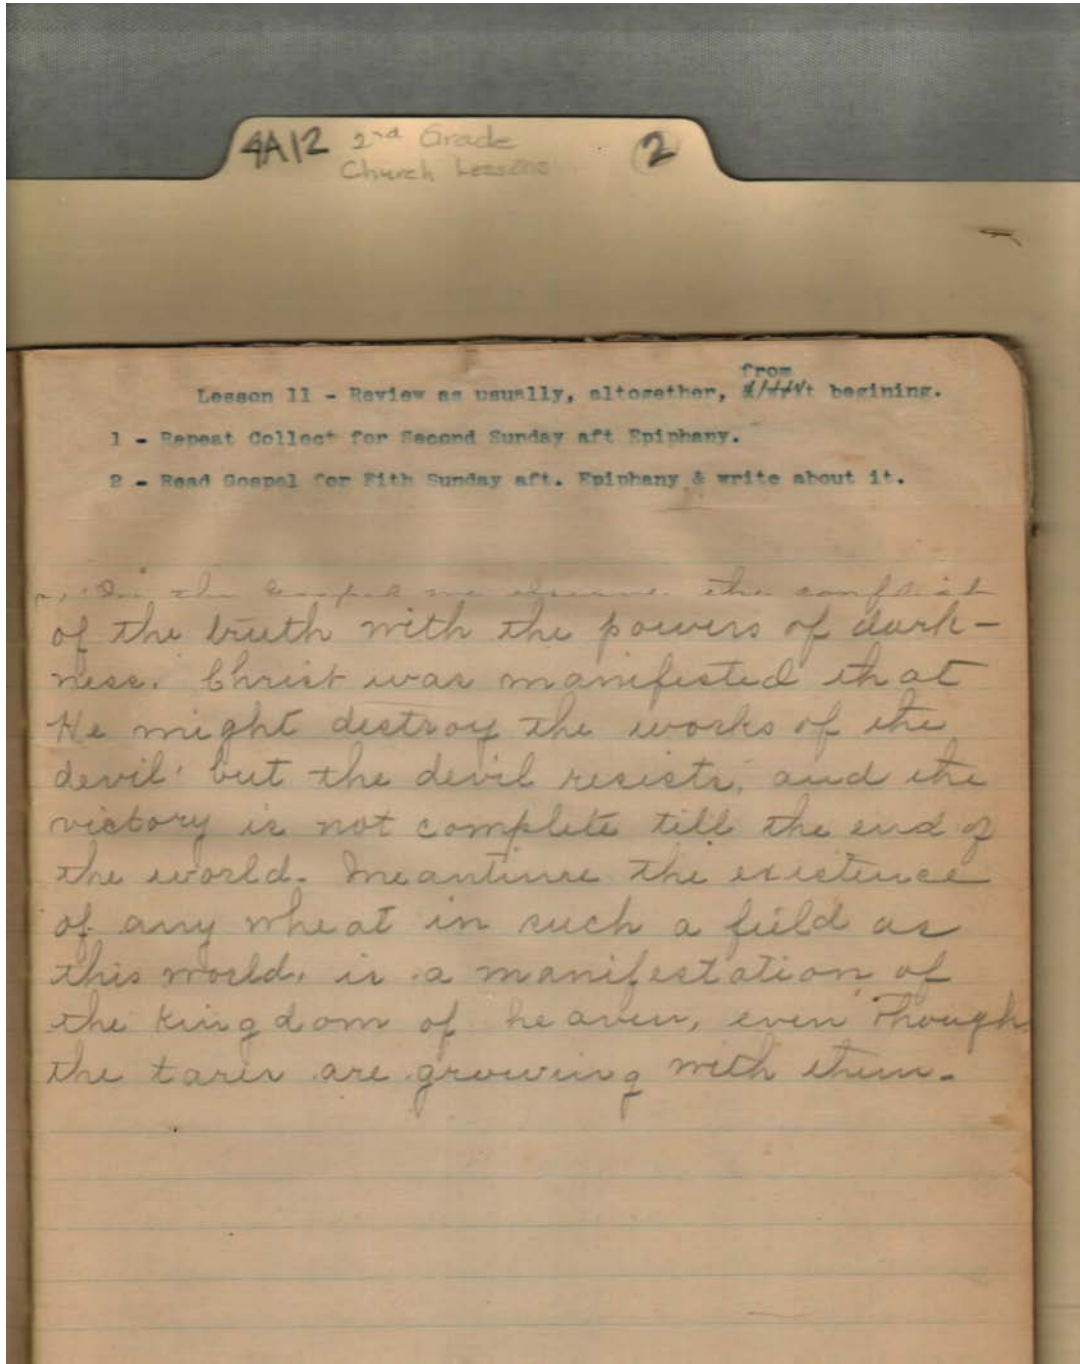 4A12 2nd Grade 2
Church Lessons
from
Lesson 11 - Review as usually, altogether, begining.
1 - Repeat Collect for Second Sunday aft Epiphany.
2 - Read Gospel for Fith Sunday aft. Epiphany & write about it.
In the Gospel we observe the conflict
of the truth with the powers of dark-
ness. Christ was manifested that
He might destroy the works of the
devil but the devil resists, and the
victory is not complete till the end of
the world. Meantime the existence
of any wheat in such a field as
this world, is a manifestation of
the kingdom of heaven, even though
the tares are growing with them.